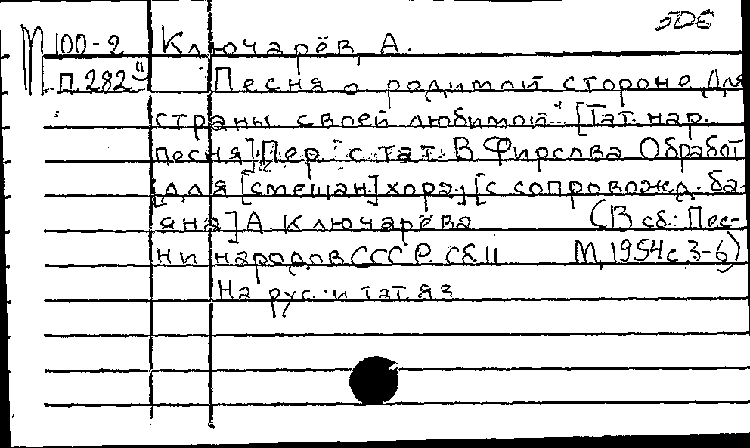 М 100-2 Ключарёв, А.
П.282 Песня о родимой стороне „Для
страны своей любимой" [Тат. нар.
песня] Пер. с тат. В Фирсова Обработ
[для [смешан] хора; [с сопровожд. ба-
яна] А Ключарёва (В сб.: Пес-
ни народов СССР. Сб. II М, 1954 с 3-6)
На рус. и тат. яз